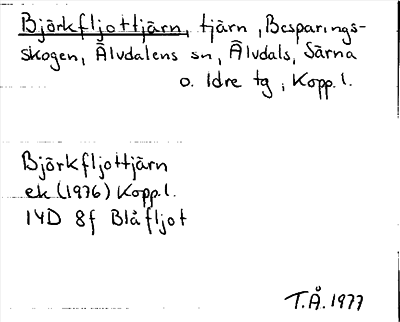 Björkfljottjärn, tjärn, Besparings-
skogen, Älvdalens sn, Älvdals, Särna
o. Idre tg, Kopp. l.
Björkfljottjärn
ek (1976) Kopp. l.
14D 8f Blåfljot
T.Å. 1977